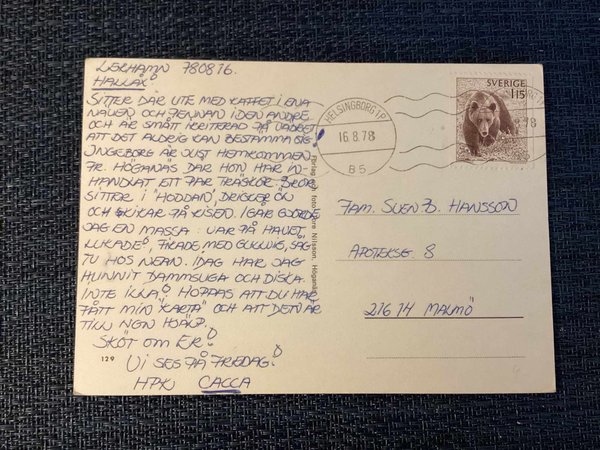 LERHAMN 780816.
HALLÅX!
SITTER DÄR UTE MED KAFFET I ENA
NÄVEN OCH PENNAN I DEN ANDRE
OCH ÄR SMÅTT IRRITERAD PÅ VÄDRET
ATT DET ALDRIG KAN BESTÄMMA SIG!
INGEBORG ÄR JUST HEMKOMMEN
FR. HÖGANÄS DÄR HON HAR IN-
HANDLAT ETT PAR TRÄSKOR. BROR
SITTER I "HODDAN", DRICKER ÖN
OCH SKIKAR PÅ KUSEN. IGÅR GJORDE
JAG EN MASSA: VAR PÅ HAVET,
LUKADE, FIKADE MED GULLVIG, SÅG
TV HOS NEAN. IDAG HAR JAG
HUNNIT DAMMSUGA OCH DISKA.
INTE ILLA! HOPPAS ATT DU HAR
FÅTT MIN "KARTA" OCH ATT DEN ÄR
TILL NGN HJÄLP.
SKÖT OM ER!
VI SES PÅ FREDAG!
HPK CACCA
129
Förlag och foto: Nilsson, Höganäs
HELSINGBORG 1P
16.8.78
B5
SVERIGE
115
FAM. SVEN B. HANSSON
APOTEKSG 8
216 14 MALMÖ